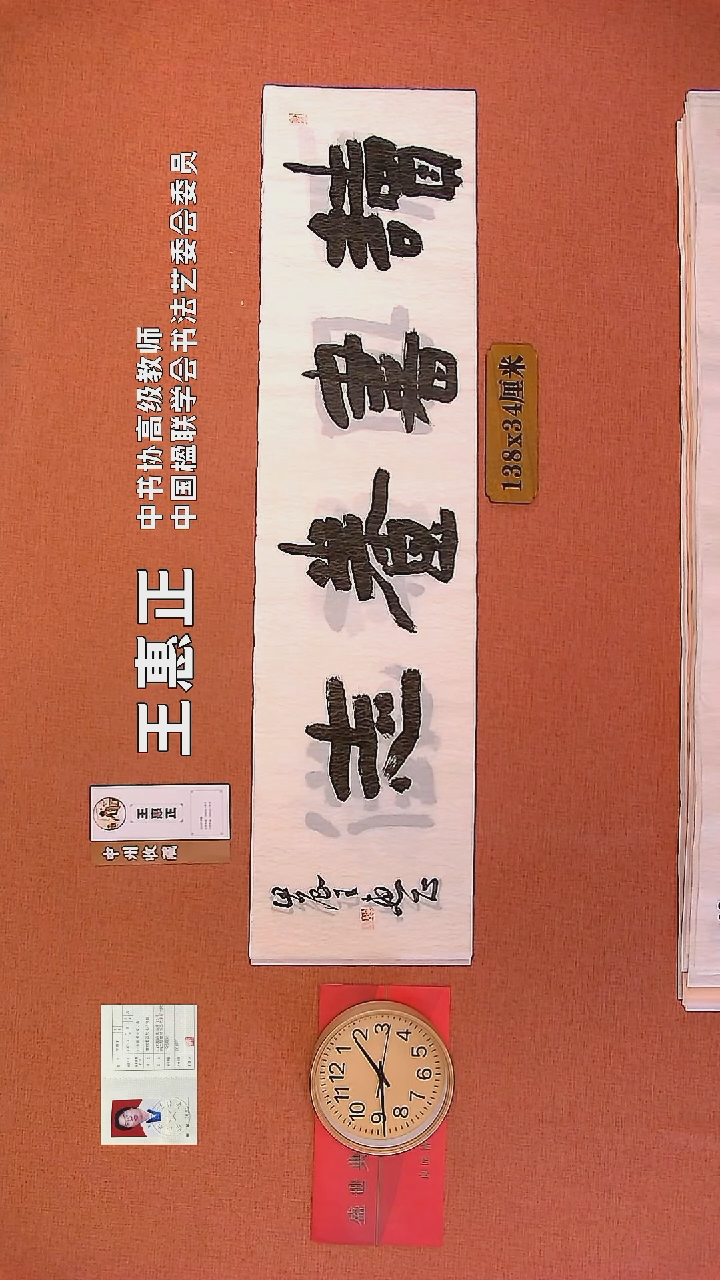 王惠正
中书协高级教师
中国楹联学会书法艺委会委员
王惠正
中州收藏
讀書養志
甲辰王惠正
138x34厘米
盛世典
12
1
2
3
4
5
6
7
8
9
10
11